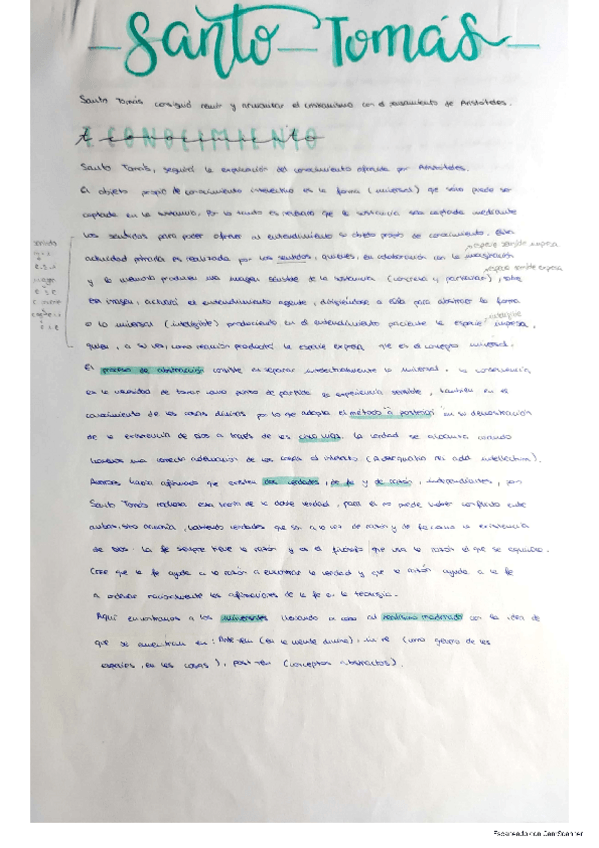 Santo Tomás
Santo Tomás consiguió reunir y armonizar el cristianismo con el pensamiento de Aristóteles.
CONOCIMIENTO
Santo Tomás, seguirá la explicación del conocimiento ofrecida por Aristóteles.
El objeto propio de conocimiento intelectivo es la forma (universal) que solo puede ser
captada en la sustancia. Por lo tanto es necesario que la sustancia sea captada mediante
los sentidos para poder ofrecer al entendimiento su objeto propio de conocimiento. Esta
especie sensible impresa
actividad primaria es realizada por los sentidos, quienes, en colaboración con la imaginación
especie sensible expresa
y la memoria producen una imagen sensible de la sustancia (concreta y particular), sobre
esa imagen, actuará el entendimiento agente, dirigiéndose a ella para abstraer la forma
o lo universal (inteligible) produciendo en el entendimiento paciente la especie impresa,
inteligible
quien, a su vez, como reacción producirá la especie expresa que es el concepto universal.
El proceso de abstracción consiste en separar intelectualmente lo universal. la consecuencia
es la necesidad de tomar como punto de partida la experiencia sensible, también en el
conocimiento de las cosas divinas por lo que adopta el método a posteriori en su demostración
de la existencia de Dios a través de las cinco vías. La verdad se alcanza cuando
hacemos una correcta adecuación de las cosas al intelecto (Adaequatio rei adal intellectum).
Averroes había afirmado que existen dos verdades, de fe y de razón, independientes, pero
Santo Tomás rechaza esta teoría de la doble verdad, para él no puede haber conflicto entre
ambas, sino armonía, habiendo verdades que son a la vez de razón y de fe como la existencia
de Dios. La fe siempre tiene la razón y es el filósofo que usa la razón el que se equivoca.
Cree que la fe ayuda a la razón a encontrar la verdad y que la razón ayuda a la fe
a ordenar racionalmente las afirmaciones de la fe en la teología.
Aquí encontramos a los universales llevando a cabo el realismo moderado con la idea de
que se encuentran en: Ante rem (en la mente divina), in re (como género de las
especies, en las cosas), post rem (conceptos abstractos).
Escaneado con CamScanner